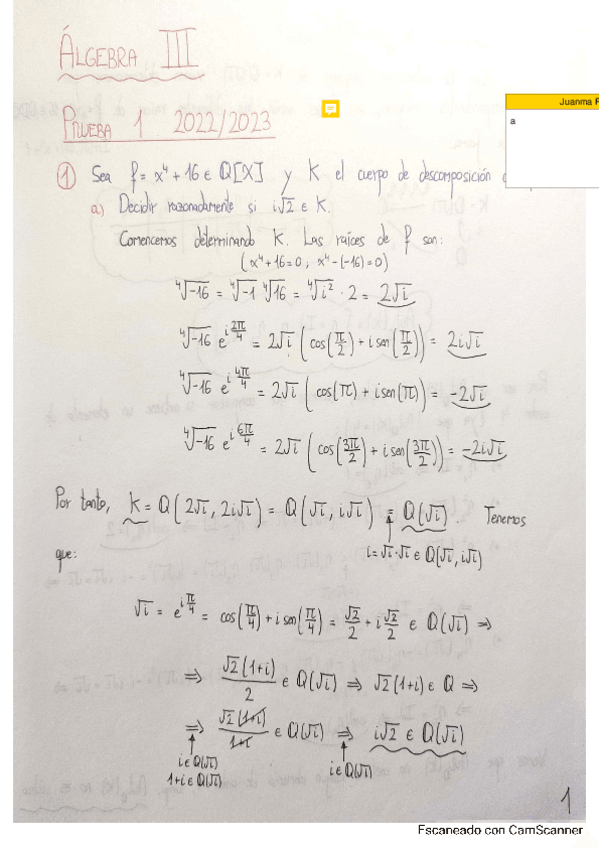 ÁLGEBRA III
PRUEBA 1 2022/2023
Juanma
a
① Sea f = x⁴ + 16 ∈ Q[X] y K el cuerpo de descomposición
a) Decidir razonadamente si i√2 ∈ K.
Comencemos determinando K. Las raíces de f son:
(x⁴+16=0 ; x⁴-(-16)=0)
⁴√-16 = ⁴√-1 ⁴√16 = ⁴√i² · 2 = 2√i
⁴√-16 e^{i 2π/4} = 2√i (cos(π/2) + i sen(π/2)) = 2i√i
⁴√-16 e^{i 4π/4} = 2√i (cos(π) + i sen(π)) = -2√i
⁴√-16 e^{i 6π/4} = 2√i (cos(3π/2) + i sen(3π/2)) = -2i√i
Por tanto, K = Q(2√i, 2i√i) = Q(√i, i√i) = Q(√i). Tenemos
i = √i·√i ∈ Q(√i, i√i)
que:
√i = e^{i π/4} = cos(π/4) + i sen(π/4) = √2/2 + i √2/2 ∈ Q(√i) ⇒
⇒ √2(1+i)/2 ∈ Q(√i) ⇒ √2(1+i) ∈ Q ⇒
⇒ √2(1+i)/1+i ∈ Q(√i) ⇒ i√2 ∈ Q(√i)
i ∈ Q(√i) i ∈ Q(√i)
1+i ∈ Q(√i)
1
Escaneado con CamScanner